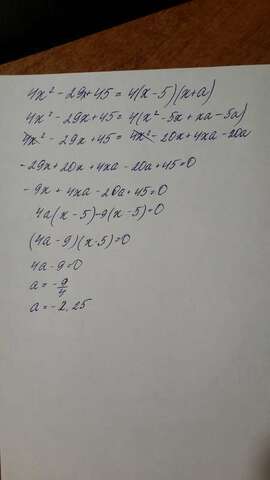 4x² - 29x + 45 = 4(x - 5)(x + a)
4x² - 29x + 45 = 4(x² - 5x + xa - 5a)
4x² - 29x + 45 = 4x² - 20x + 4xa - 20a
-29x + 20x + 4xa - 20a + 45 = 0
-9x + 4xa - 20a + 45 = 0
4a(x - 5) - 9(x - 5) = 0
(4a - 9)(x - 5) = 0
4a - 9 = 0
a = -9/4
a = -2,25